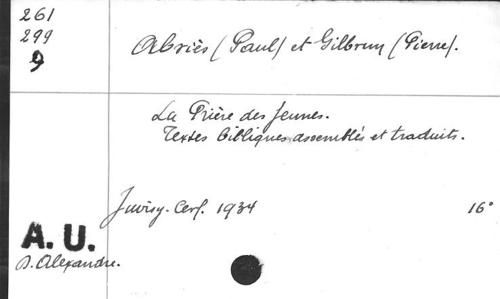 261
299
9
Abriès (Paul) et Gilbrun (Pierre).
La Prière des Jeunes.
Textes bibliques assemblés et traduits.
Juvisy. Cerf. 1934 16°
A. U.
D. Alexandre.